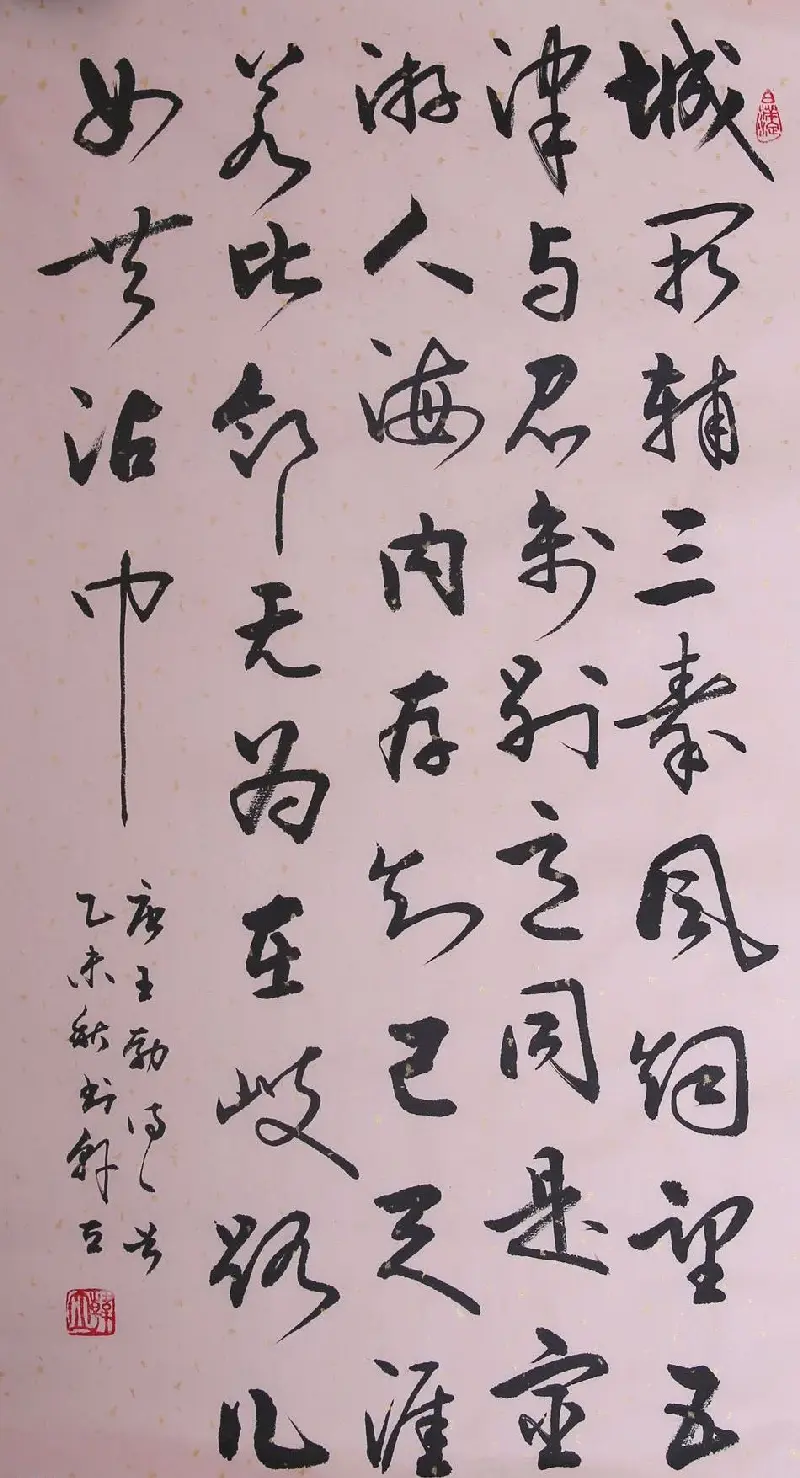 城阙辅三秦风烟望五
津与君离别意同是宦
游人海内存知己天涯
若比邻无为在岐路儿
女共沾巾
唐王勃诗一首
乙未秋书韩立